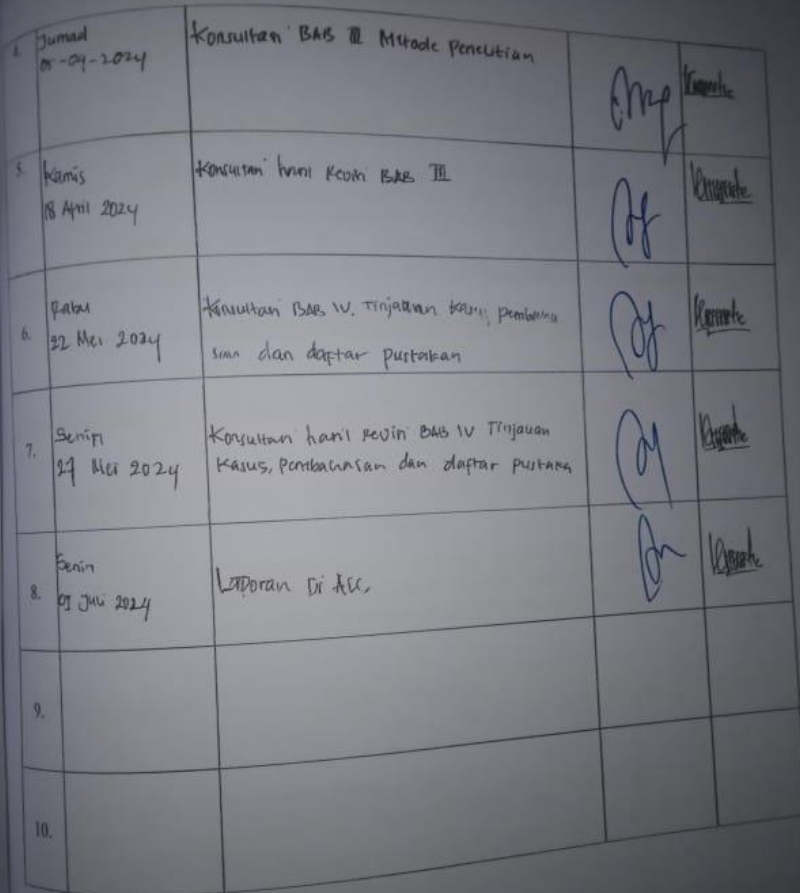 Jumad
05-04-2024
Konsultasi BAB III Metode Penelitian
5.
Kamis
18 April 2024
Konsultasi hasil Revisi BAB III
6.
Rabu
22 Mei 2024
Konsultasi BAB IV, Tinjauan Kasus, pembaha
dan daftar pustakan
7.
Senin
27 Mei 2024
Konsultasi hasil Revisi BAB IV Tinjauan
Kasus, pembahasan dan daftar pustaka
8.
Senin
01 Juli 2024
Laporan Di Acc,
9.
10.